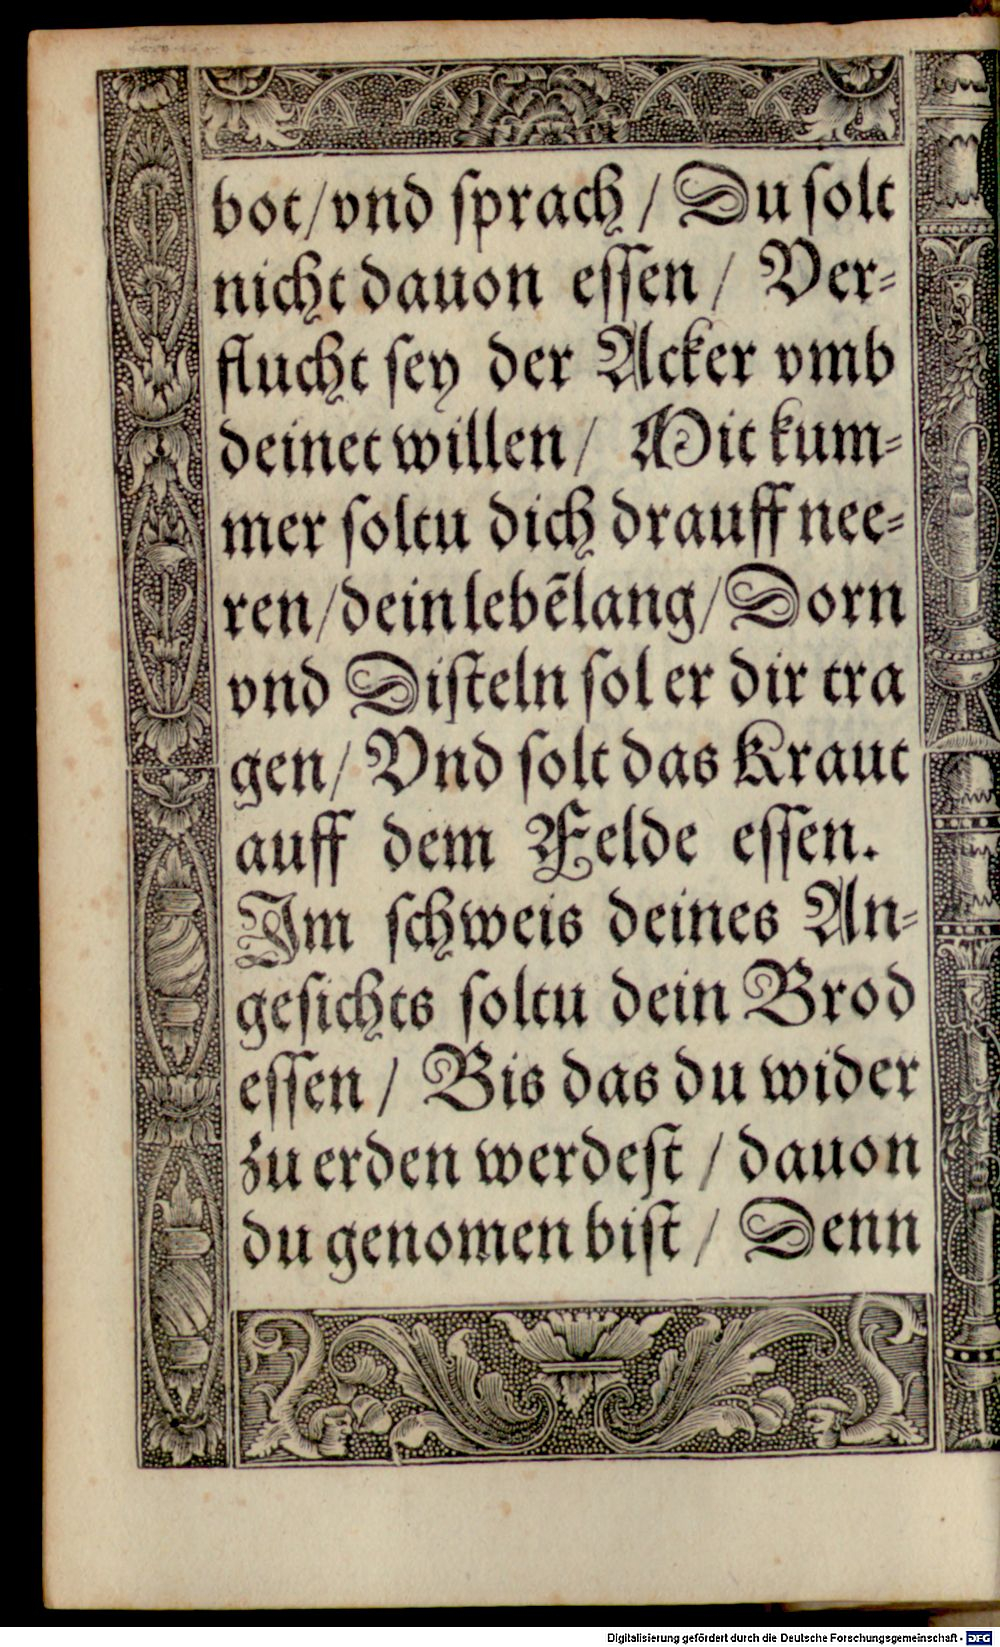 bot/vnd ſprach / Du ſolt
nicht dauon eſſen / Ver⸗
flucht ſey der Acker vmb
deinet willen / Mit kum⸗
mer ſoltu dich drauff nee⸗
ren/dein lebẽlang/Dorn
vnd Diſteln ſol er dir tra
gen/ Vnd ſolt das Kraut
auff dem Felde eſſen.
Im ſchweis deines An⸗
geſichts ſoltu dein Brod
eſſen / Bis das du wider
zu erden werdeſt / dauon
du genomen biſt / Denn
Digitalisierung gefördert durch die Deutsche Forschungsgemeinschaft - DFG